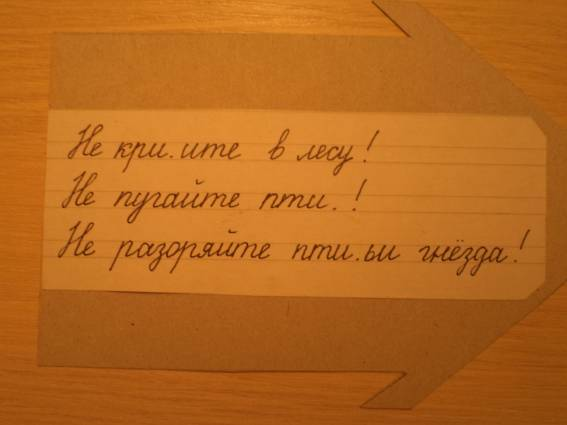 Не кри.ите в лесу!
Не пугайте пти.!
Не разоряйте пти.ьи гнёзда!